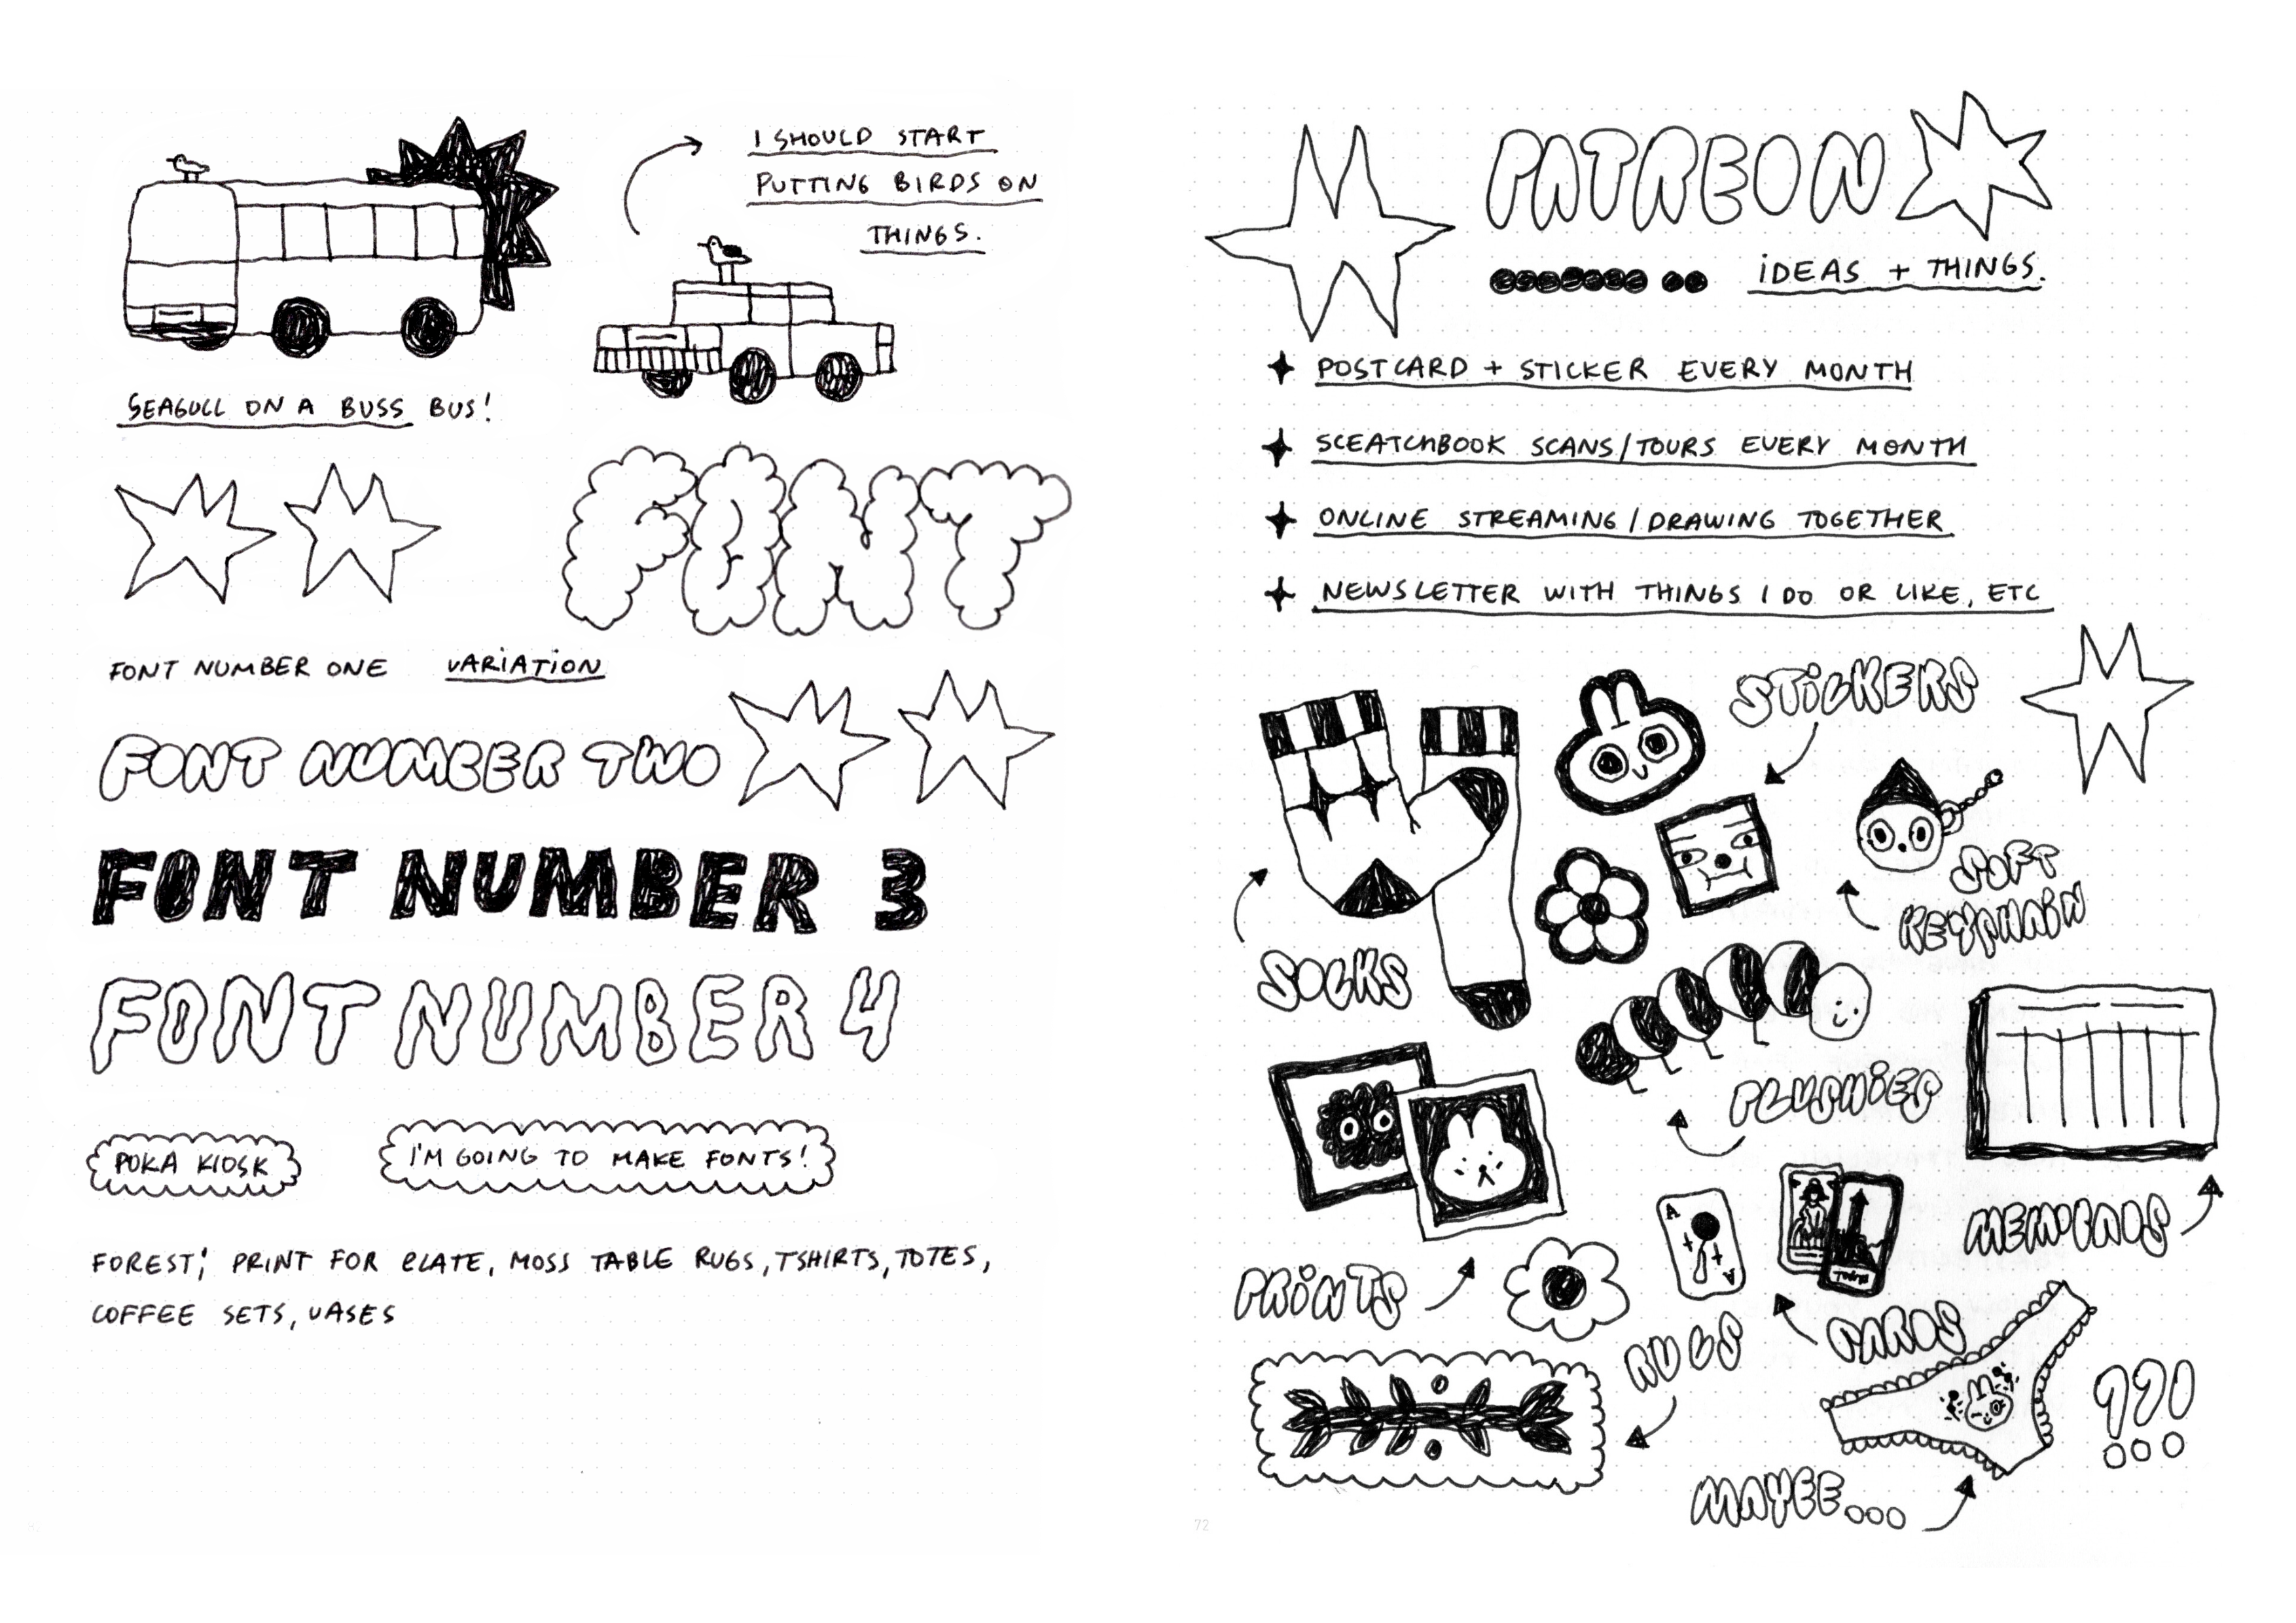 I SHOULD START
PUTTING BIRDS ON
THINGS.
SEAGULL ON A BUSS BUS!
FONT
FONT NUMBER ONE VARIATION
FONT NUMBER TWO
FONT NUMBER 3
FONT NUMBER 4
POKA KIOSK
I'M GOING TO MAKE FONTS!
FOREST; PRINT FOR PLATE, MOSS TABLE RUGS, TSHIRTS, TOTES,
COFFEE SETS, VASES
PATREON
IDEAS + THINGS.
POSTCARD + STICKER EVERY MONTH
SCEATCHBOOK SCANS/TOURS EVERY MONTH
ONLINE STREAMING/DRAWING TOGETHER
NEWSLETTER WITH THINGS I DO OR LIKE, ETC
STICKERS
SOFT
KEYCHAIN
SOCKS
PLUSHIES
MEMOPADS
PRINTS
A
A
CARDS
RUGS
???
MAYBE...
72